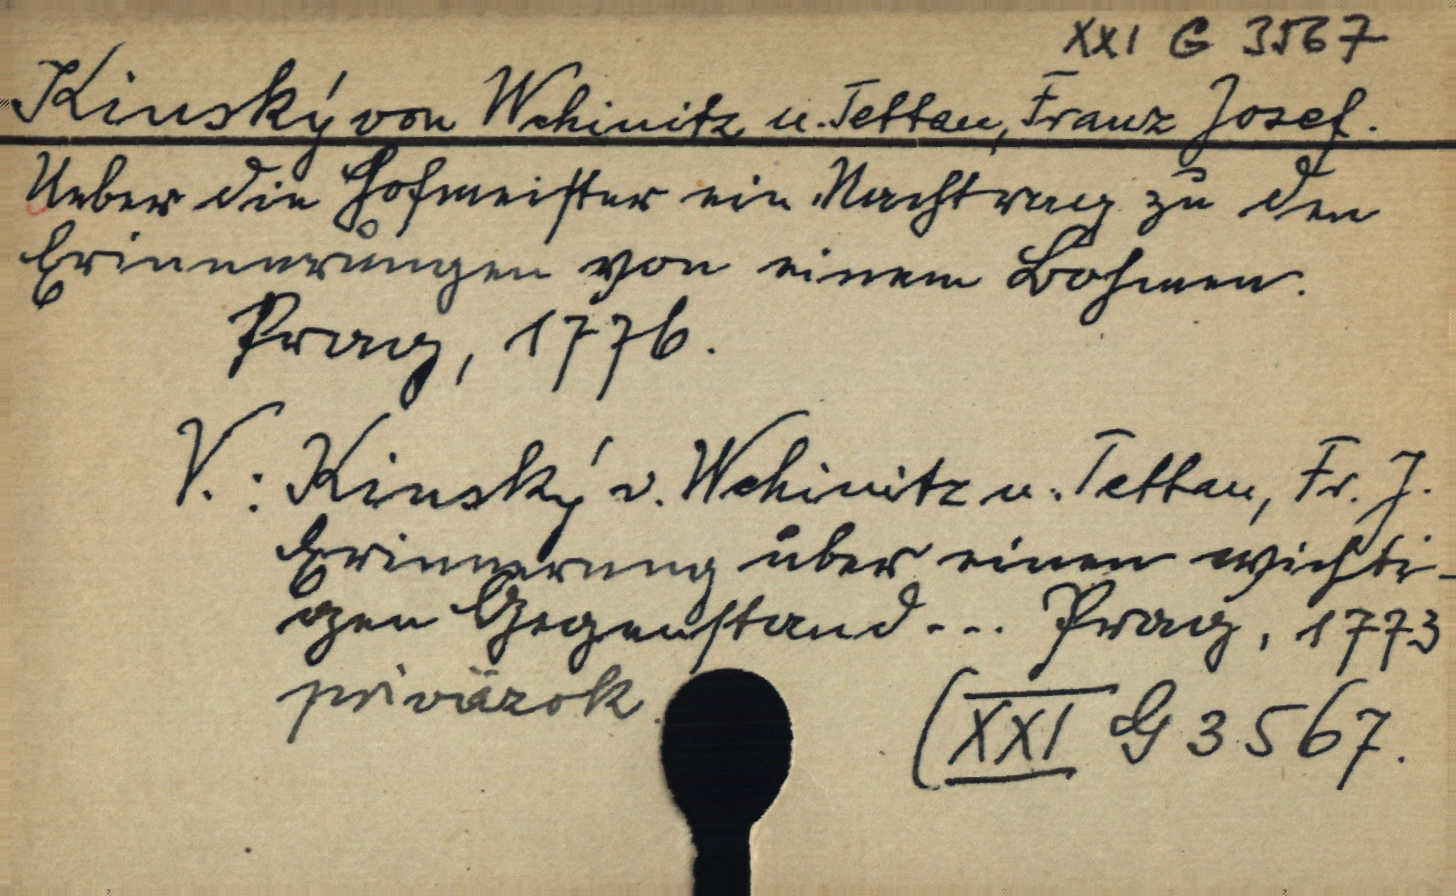 XXI G 3567
Kinský von Wchinitz u. Tettau, Franz Josef.
Ueber die Hofmeister ein Nachtrag zu den
Erinnerungen von einem Böhmen.
Prag, 1776.
V.: Kinský v. Wchinitz u. Tettau, Fr. J.
Erinnerung über einen wichti-
gen Gegenstand... Prag, 1773
priväzok.
(XXI G 3567.